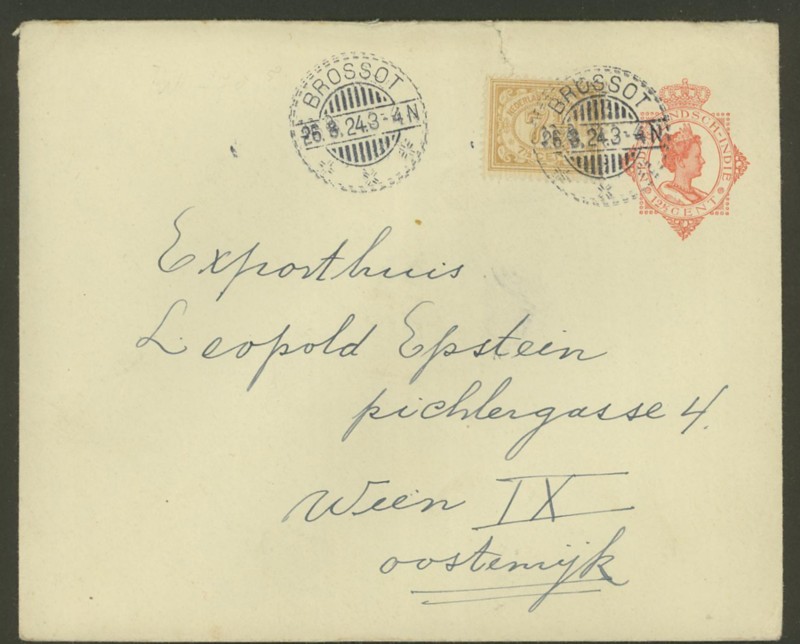 BROSSOT
26.8.24.3-4N
BROSSOT
26.8.24.3-4N
NEDERL
7½
NDSCH-INDIE
12½ CENT
Exporthuis
Leopold Epstein
pichlergasse 4.
Ween IX
oostenrijk